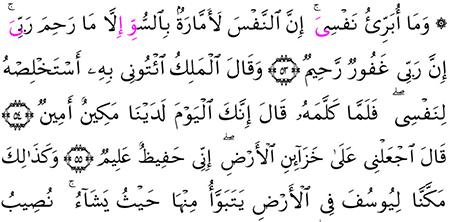 ۞ وَمَآ أُبَرِّئُ نَفْسِىٓ ۚ إِنَّ ٱلنَّفْسَ لَأَمَّارَةٌۢ بِٱلسُّوٓءِ إِلَّا مَا رَحِمَ رَبِّىٓ ۚ
إِنَّ رَبِّى غَفُورٌ رَّحِيمٌ ﴿٥٣﴾ وَقَالَ ٱلْمَلِكُ ٱئْتُونِى بِهِۦٓ أَسْتَخْلِصْهُ
لِنَفْسِى ۖ فَلَمَّا كَلَّمَهُۥ قَالَ إِنَّكَ ٱلْيَوْمَ لَدَيْنَا مَكِينٌ أَمِينٌ ﴿٥٤﴾
قَالَ ٱجْعَلْنِى عَلَىٰ خَزَآئِنِ ٱلْأَرْضِ ۖ إِنِّى حَفِيظٌ عَلِيمٌ ﴿٥٥﴾ وَكَذَٰلِكَ
مَكَّنَّا لِيُوسُفَ فِى ٱلْأَرْضِ يَتَبَوَّأُ مِنْهَا حَيْثُ يَشَآءُ ۚ نُصِيبُ